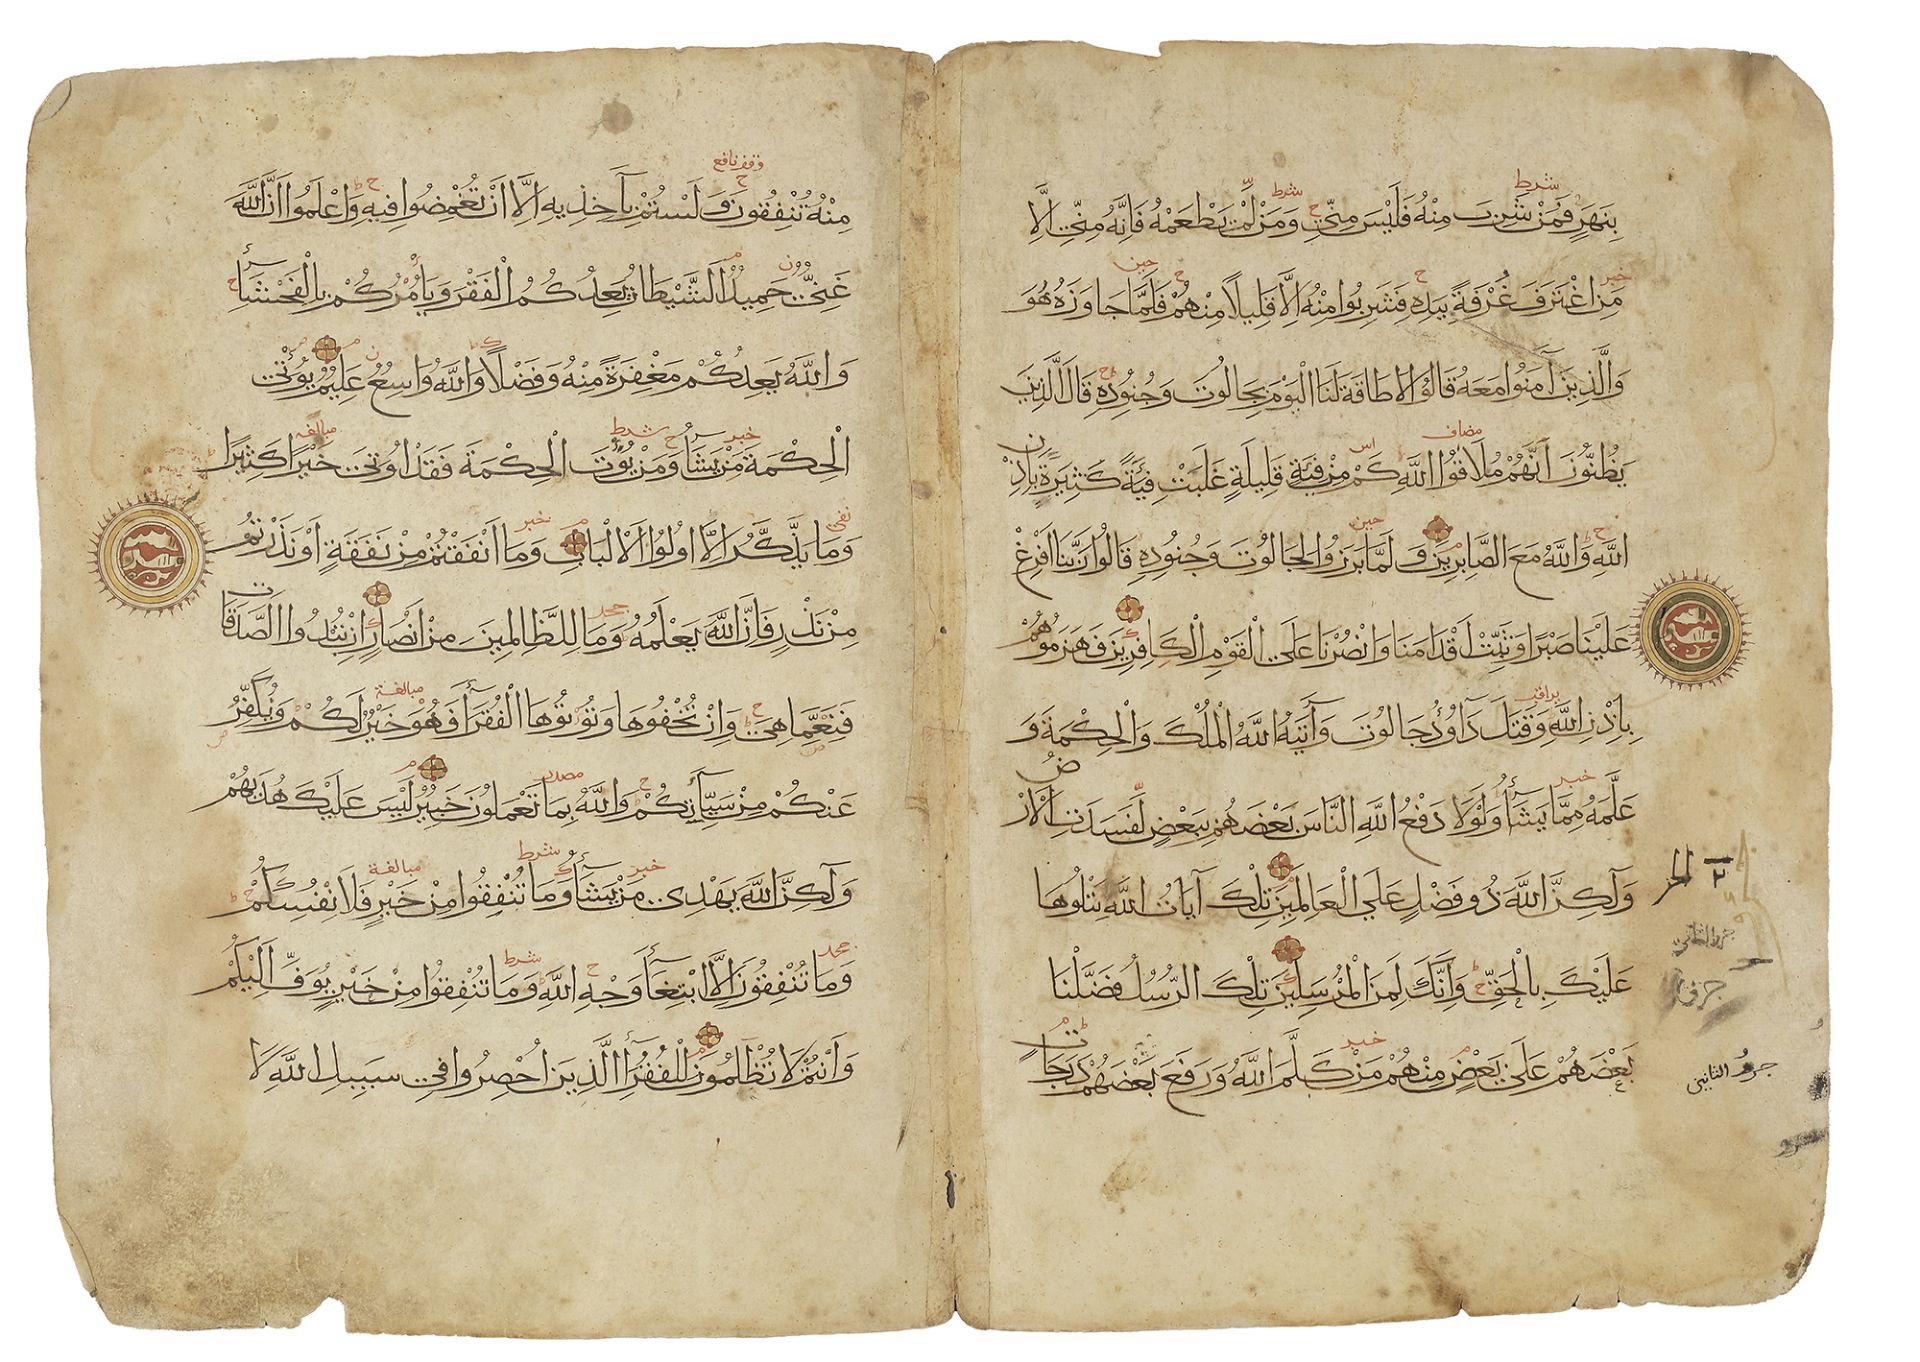 بِنَهَرٍ فَمَنْ شَرِبَ مِنْهُ فَلَيْسَ مِنِّي وَمَنْ لَمْ يَطْعَمْهُ فَإِنَّهُ مِنِّي إِلَّا
مَنِ اغْتَرَفَ غُرْفَةً بِيَدِهِ فَشَرِبُوا مِنْهُ إِلَّا قَلِيلًا مِنْهُمْ فَلَمَّا جَاوَزَهُ هُوَ
وَالَّذِينَ آمَنُوا مَعَهُ قَالُوا لَا طَاقَةَ لَنَا الْيَوْمَ بِجَالُوتَ وَجُنُودِهِ قَالَ الَّذِينَ
يَظُنُّونَ أَنَّهُمْ مُلَاقُوا اللَّهِ كَمْ مِنْ فِئَةٍ قَلِيلَةٍ غَلَبَتْ فِئَةً كَثِيرَةً بِإِذْنِ
اللَّهِ وَاللَّهُ مَعَ الصَّابِرِينَ وَلَمَّا بَرَزُوا لِجَالُوتَ وَجُنُودِهِ قَالُوا رَبَّنَا أَفْرِغْ
عَلَيْنَا صَبْرًا وَثَبِّتْ أَقْدَامَنَا وَانْصُرْنَا عَلَى الْقَوْمِ الْكَافِرِينَ فَهَزَمُوهُمْ
بِإِذْنِ اللَّهِ وَقَتَلَ دَاوُدُ جَالُوتَ وَآتَيهُ اللَّهُ الْمُلْكَ وَالْحِكْمَةَ وَ
عَلَّمَهُ مِمَّا يَشَاءُ وَلَوْلَا دَفْعُ اللَّهِ النَّاسَ بَعْضَهُمْ بِبَعْضٍ لَفَسَدَتِ الْأَرْضُ
وَلَكِنَّ اللَّهَ ذُو فَضْلٍ عَلَى الْعَالَمِينَ تِلْكَ آيَاتُ اللَّهِ نَتْلُوهَا
عَلَيْكَ بِالْحَقِّ وَإِنَّكَ لَمِنَ الْمُرْسَلِينَ تِلْكَ الرُّسُلُ فَضَّلْنَا
بَعْضَهُمْ عَلَى بَعْضٍ مِنْهُمْ مَنْ كَلَّمَ اللَّهُ وَرَفَعَ بَعْضَهُمْ دَرَجَاتٍ
مِنْهُ تُنْفِقُونَ وَلَسْتُمْ بِآخِذِيهِ إِلَّا أَنْ تُغْمِضُوا فِيهِ وَاعْلَمُوا أَنَّ اللَّهَ
غَنِيٌّ حَمِيدٌ الشَّيْطَانُ يَعِدُكُمُ الْفَقْرَ وَيَأْمُرُكُمْ بِالْفَحْشَاءِ
وَاللَّهُ يَعِدُكُمْ مَغْفِرَةً مِنْهُ وَفَضْلًا وَاللَّهُ وَاسِعٌ عَلِيمٌ يُؤْتِي
الْحِكْمَةَ مَنْ يَشَاءُ وَمَنْ يُؤْتَ الْحِكْمَةَ فَقَدْ أُوتِيَ خَيْرًا كَثِيرًا
وَمَا يَذَّكَّرُ إِلَّا أُولُوا الْأَلْبَابِ وَمَا أَنْفَقْتُمْ مِنْ نَفَقَةٍ أَوْ نَذَرْتُمْ
مِنْ نَذْرٍ فَإِنَّ اللَّهَ يَعْلَمُهُ وَمَا لِلظَّالِمِينَ مِنْ أَنْصَارٍ إِنْ تُبْدُوا الصَّدَقَاتِ
فَنِعِمَّا هِيَ وَإِنْ تُخْفُوهَا وَتُؤْتُوهَا الْفُقَرَاءَ فَهُوَ خَيْرٌ لَكُمْ وَنُكَفِّرُ
عَنْكُمْ مِنْ سَيِّئَاتِكُمْ وَاللَّهُ بِمَا تَعْمَلُونَ خَبِيرٌ لَيْسَ عَلَيْكَ هُدَيهُمْ
وَلَكِنَّ اللَّهَ يَهْدِي مَنْ يَشَاءُ وَمَا تُنْفِقُوا مِنْ خَيْرٍ فَلِأَنْفُسِكُمْ
وَمَا تُنْفِقُونَ إِلَّا ابْتِغَاءَ وَجْهِ اللَّهِ وَمَا تُنْفِقُوا مِنْ خَيْرٍ يُوَفَّ إِلَيْكُمْ
وَأَنْتُمْ لَا تُظْلَمُونَ لِلْفُقَرَاءِ الَّذِينَ أُحْصِرُوا فِي سَبِيلِ اللَّهِ لَا